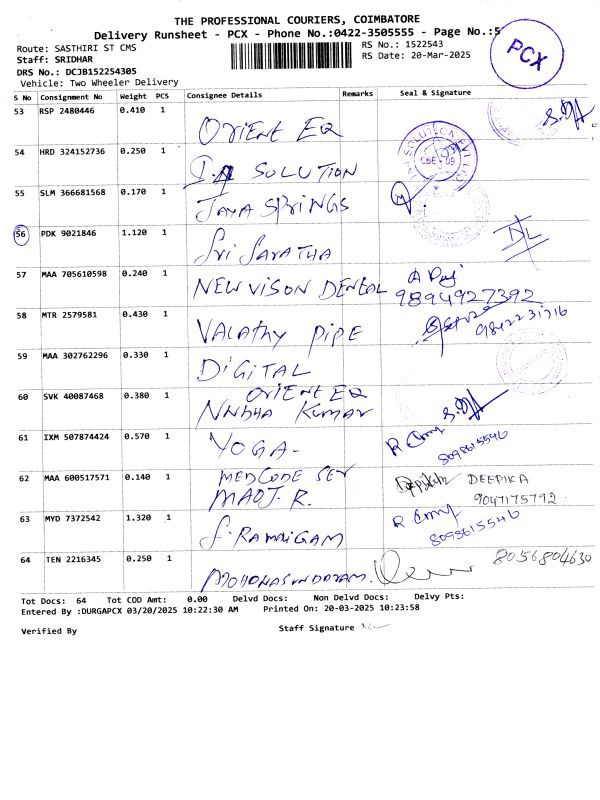 THE PROFESSIONAL COURIERS, COIMBATORE
Delivery Runsheet - PCX - Phone No.:0422-3505555 - Page No.:5
Route: SASTHIRI ST CMS
RS No.: 1522543
Staff: SRIDHAR
RS Date: 20-Mar-2025
DRS No.: DCJB152254305
Vehicle: Two Wheeler Delivery
PCX
S No Consignment No Weight PCS Consignee Details Remarks Seal & Signature
53 RSP 2480446 0.410 1 ORIENT EQ
54 HRD 324152736 0.250 1 SOLUTION
CBE - 09
55 SLM 366681568 0.170 1 JAYA SPRINGS
56 PDK 9021846 1.120 1 Sri SARATHA
57 MAA 705610598 0.240 1 NEW VISON DENTAL
9894927392
58 MTR 2579581 0.430 1 VALATHY PIPE
59 MAA 302762296 0.330 1 DIGITAL
ORIENT EQ
60 SVK 40087468 0.380 1 KUMAR
61 IXM 507874424 0.570 1 YOGA-
8098615546
62 MAA 600517571 0.140 1 MEDCODE SER
DEEPIKA
MAOJ.R.
9047175792
63 MYD 7372542 1.320 1
8098615546
64 TEN 2216345 0.250 1
8056804630
Tot Docs: 64 Tot COD Amt: 0.00 Delvd Docs: Non Delvd Docs: Delvy Pts:
Entered By :DURGAPCX 03/20/2025 10:22:30 AM Printed On: 20-03-2025 10:23:58
Verified By
Staff Signature